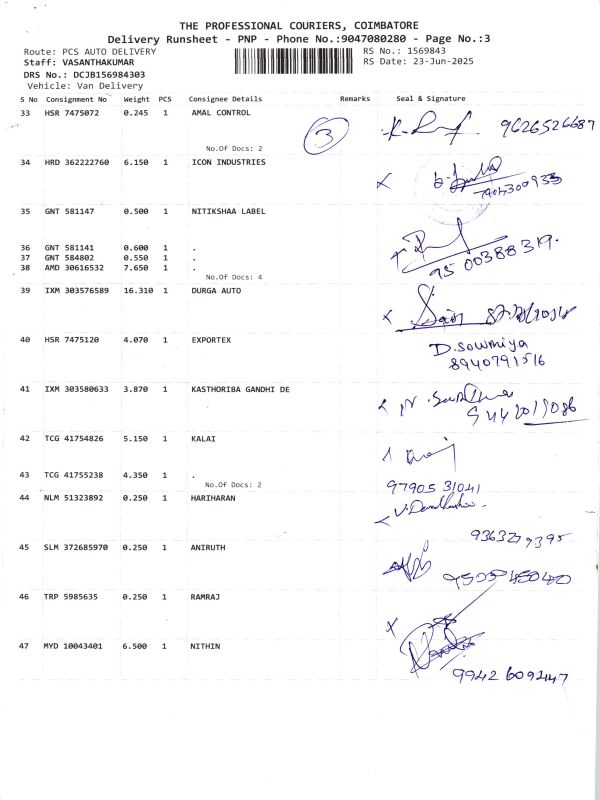 THE PROFESSIONAL COURIERS, COIMBATORE
Delivery Runsheet - PNP - Phone No.:9047080280 - Page No.:3
Route: PCS AUTO DELIVERY RS No.: 1569843
Staff: VASANTHAKUMAR RS Date: 23-Jun-2025
DRS No.: DCJB156984303
Vehicle: Van Delivery
S No Consignment No Weight PCS Consignee Details Remarks Seal & Signature
33 HSR 7475072 0.245 1 AMAL CONTROL
3 9626526687
No.Of Docs: 2
34 HRD 362222760 6.150 1 ICON INDUSTRIES
35 GNT 581147 0.500 1 NITIKSHAA LABEL
36 GNT 581141 0.600 1 .
37 GNT 584802 0.550 1 .
38 AMD 30616532 7.650 1 .
95 00388319.
No.Of Docs: 4
39 IXM 303576589 16.310 1 DURGA AUTO
40 HSR 7475120 4.070 1 EXPORTEX
D.sowmiya
8940791516
41 IXM 303580633 3.870 1 KASTHORIBA GANDHI DE
42 TCG 41754826 5.150 1 KALAI
43 TCG 41755238 4.350 1 .
No.Of Docs: 2
97905 31041
44 NLM 51323892 0.250 1 HARIHARAN
45 SLM 372685970 0.250 1 ANIRUTH
46 TRP 5985635 0.250 1 RAMRAJ
47 MYD 10043401 6.500 1 NITHIN
99426 09247